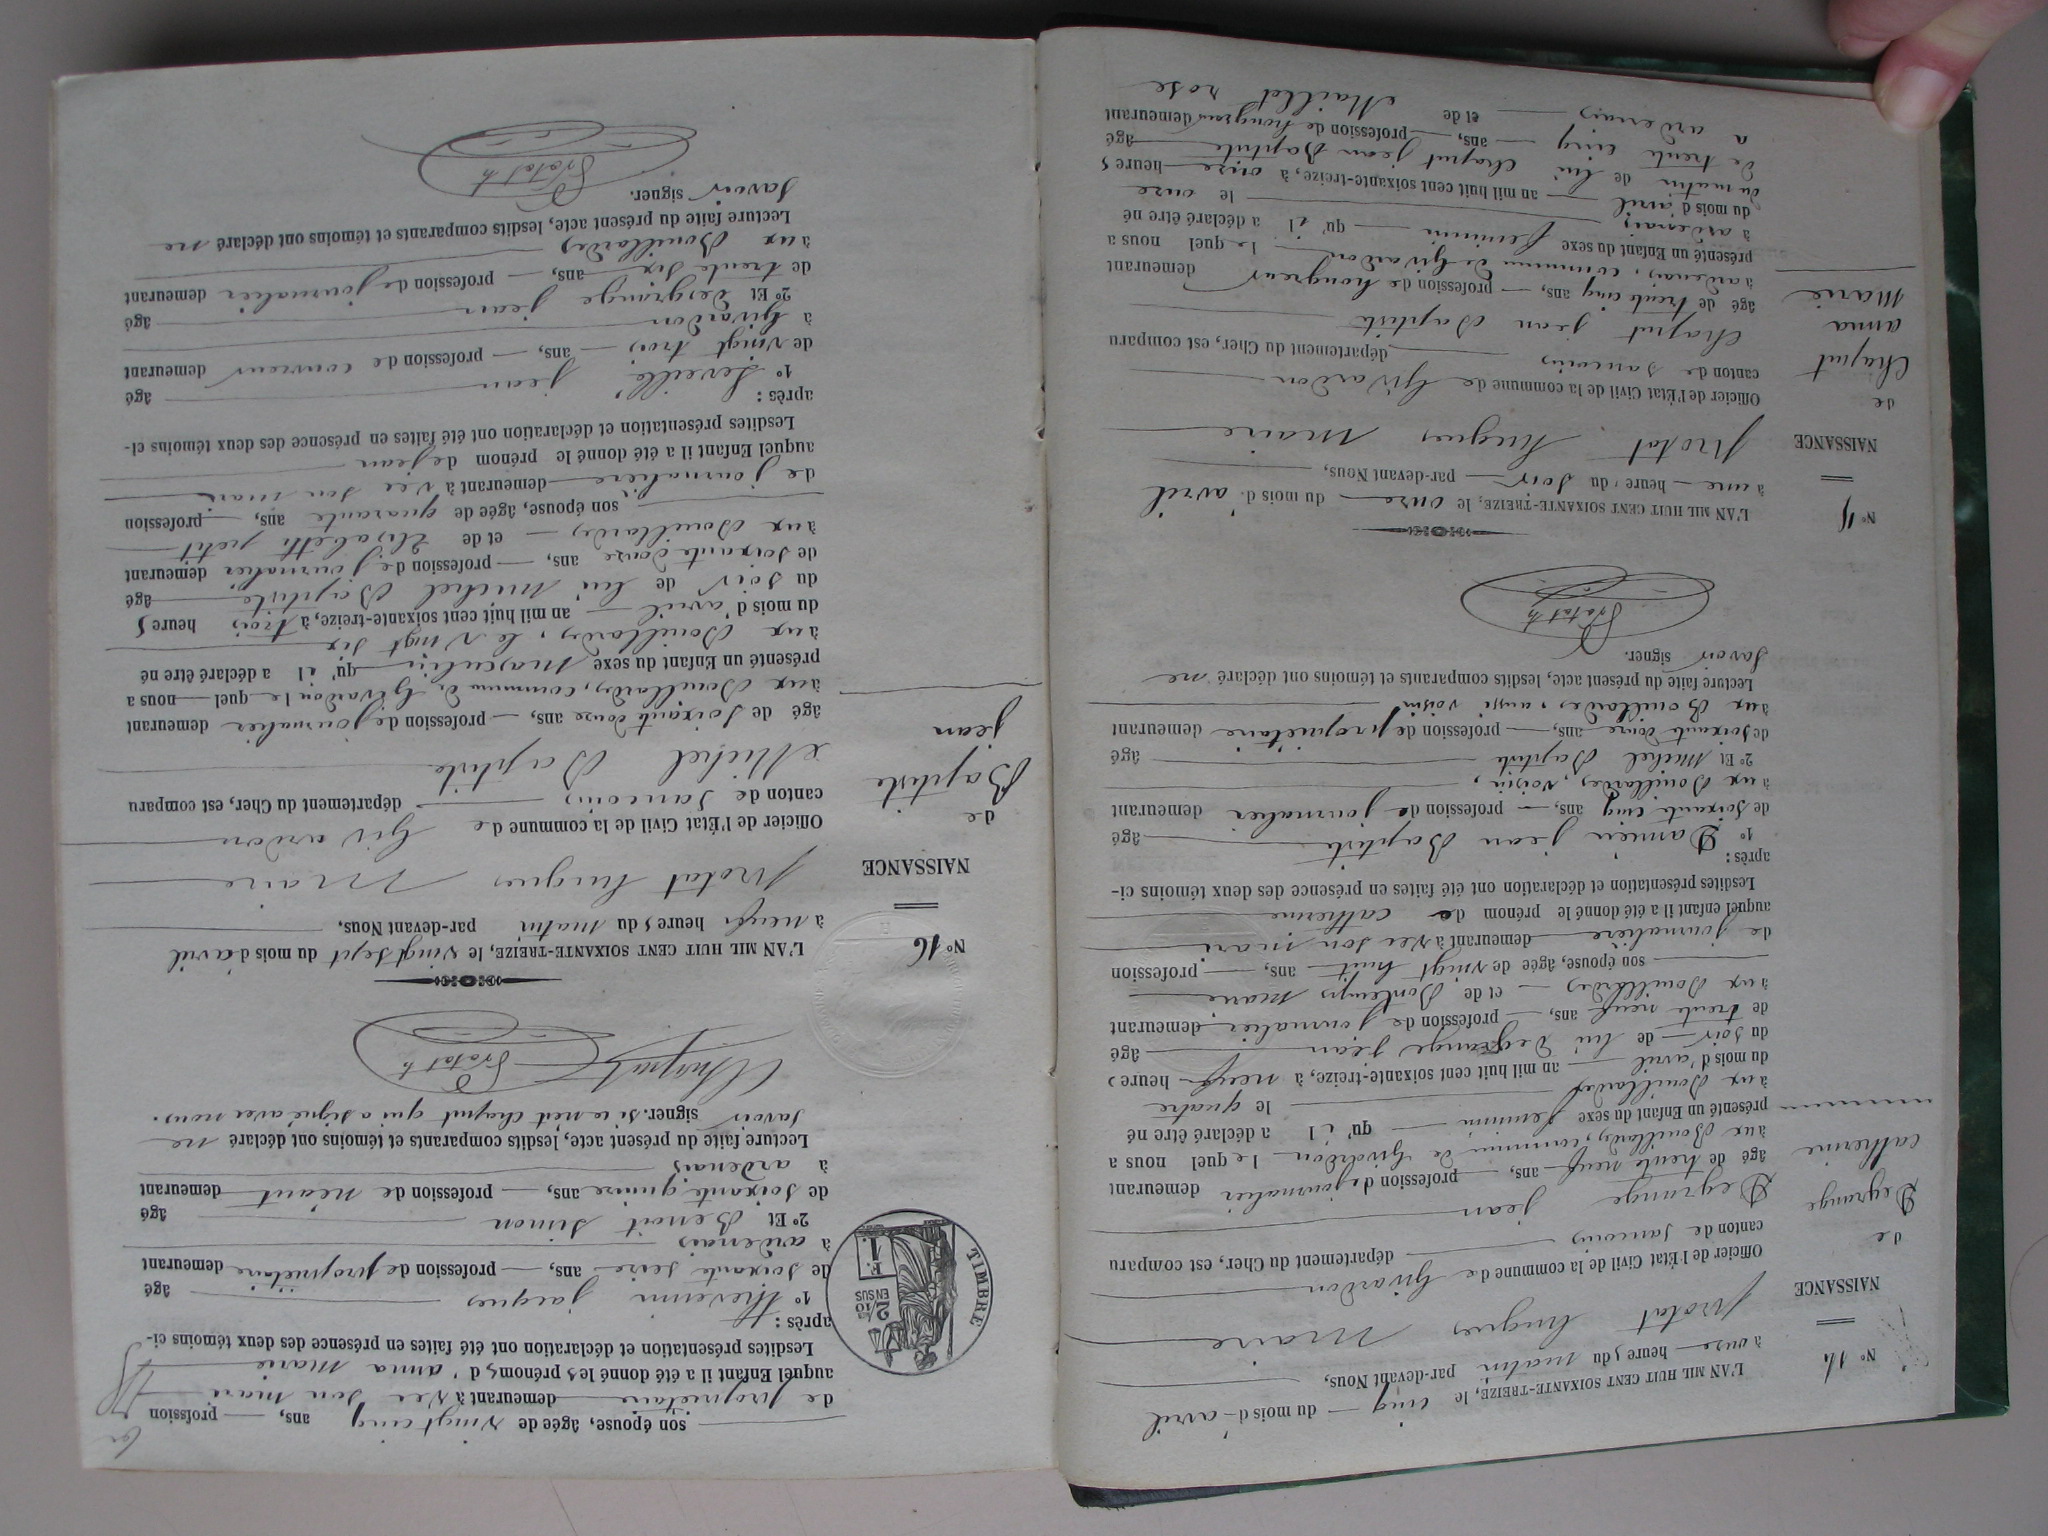 N° 14
NAISSANCE
de
Degrange
Catherine
L'AN MIL HUIT CENT SOIXANTE-TREIZE, le cinq du mois d'avril
à onze heures du matin par-devant Nous,
Protat hugues Maire
Officier de l'État Civil de la commune de Givardon
canton de Sancoins département du Cher, est comparu
Degrange jean
âgé de trente neuf ans, profession de journalier demeurant
aux Bouillards, commune de Givardon lequel nous a
présenté un Enfant du sexe feminin qu'il a déclaré être né
aux Bouillardes le quatre
du mois d'avril an mil huit cent soixante-treize, à neuf heures
du soir de lui Degrange jean âgé
de trente neuf ans, profession de journalier demeurant
aux Bouillardes et de Bontemps marie
son épouse, âgée de vingt huit ans, profession
de journalière demeurant à vec son mari
auquel enfant il a été donné le prénom de catherine
Lesdites présentation et déclaration ont été faites en présence des deux témoins ci-
après :
1° Damien jean Baptiste âgé
de soixante cinq ans, profession de journalier demeurant
aux Bouillardes, voisin,
2° Et Michel Baptiste âgé
de soixante douze ans, profession de propriétaire demeurant
aux Bouillardes, aussi voisin
Lecture faite du présent acte, lesdits comparants et témoins ont déclaré ne
savoir signer.
Protat h
N° 15
NAISSANCE
de
Chaput
anna
Marie
L'AN MIL HUIT CENT SOIXANTE-TREIZE, le onze du mois d'avril
à une heure du soir par-devant Nous,
Protat hugues Maire
Officier de l'État Civil de la commune de Givardon
canton de Sancoins département du Cher, est comparu
Chaput jean Baptiste
âgé de trente cinq ans, profession de hongreur demeurant
à ardenais, commune de Givardon lequel nous a
présenté un Enfant du sexe feminin qu'il a déclaré être né
à ardenais le onze
du mois d'avril an mil huit cent soixante-treize, à onze heures
du matin de lui Chaput jean Baptiste âgé
de trente cinq ans, profession de hongreur demeurant
a ardenais et de Maillet rose
son épouse, âgée de vingt cinq ans, profession
de propriétaire demeurant à vec son mari
auquel Enfant il a été donné les prénoms d'anna Marie
Lesdites présentation et déclaration ont été faites en présence des deux témoins ci-
après :
1° thevenin jacques âgé
de soixante seize ans, profession de propriétaire demeurant
à ardenais
2° Et Benoit Simon âgé
de soixante quinze ans, profession de néant demeurant
à ardenais
Lecture faite du présent acte, lesdits comparants et témoins ont déclaré ne
savoir signer. si ce n'est chaput qui a signé avec nous.
Chaput
Protat h
TIMBRE
2/10
EN SUS
F. 1
N° 16
NAISSANCE
de
Baptiste
jean
L'AN MIL HUIT CENT SOIXANTE-TREIZE, le vingt sept du mois d'avril
à neuf heures du matin par-devant Nous,
Protat hugues Maire
Officier de l'État Civil de la commune de Givardon
canton de Sancoins département du Cher, est comparu
Michel Baptiste
âgé de soixante douze ans, profession de journalier demeurant
aux Bouillardes, commune de Givardon lequel nous a
présenté un Enfant du sexe masculin qu'il a déclaré être né
aux Bouillardes, le vingt six
du mois d'avril an mil huit cent soixante-treize, à trois heures
du soir de lui Michel Baptiste, âgé
de soixante douze ans, profession de journalier demeurant
aux Bouillardes et de Elisabeth petit
son épouse, âgée de quarante ans, profession
de journalière demeurant à vec son mari
auquel Enfant il a été donné le prénom de jean
Lesdites présentation et déclaration ont été faites en présence des deux témoins ci-
après :
1° Leveillé jean âgé
de vingt trois ans, profession de couvreur demeurant
à Givardon
2° Et Desgrange jean âgé
de trente six ans, profession de journalier demeurant
aux Bouillardes
Lecture faite du présent acte, lesdits comparants et témoins ont déclaré ne
savoir signer.
Protat h